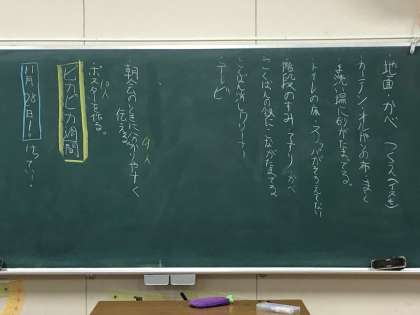 ・地面 かべ つくえ(イスも)
・カーテン・オルガンの布・まど
手洗い場に水がたまってる。
トイレの床、スリッパがそろってない
階段のすみ、てすり、かべ
こくばんの後ろにこながたまってる
こくばんけしクリーナー
テレビ
9人
朝会のときに分かりやすく
伝える。
10人
ポスターを作る。
ピカピカ週間
11月28日!けってい!